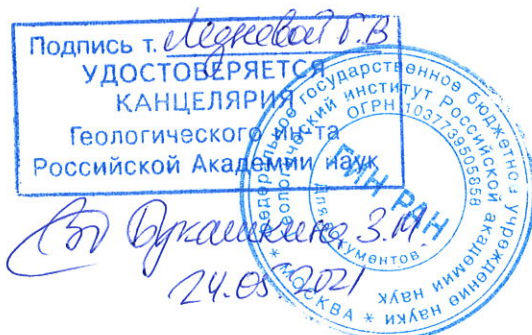 Подпись т. Ледневой Г.В
УДОСТОВЕРЯЕТСЯ
КАНЦЕЛЯРИЯ
Геологического ин-та
Российской Академии наук
Букашкина З.М.
24.05.2021
Федеральное государственное бюджетное учреждение науки * МОСКВА *
Геологический институт Российской академии наук
ОГРН 1037739505858
ГИН РАН
Для документов